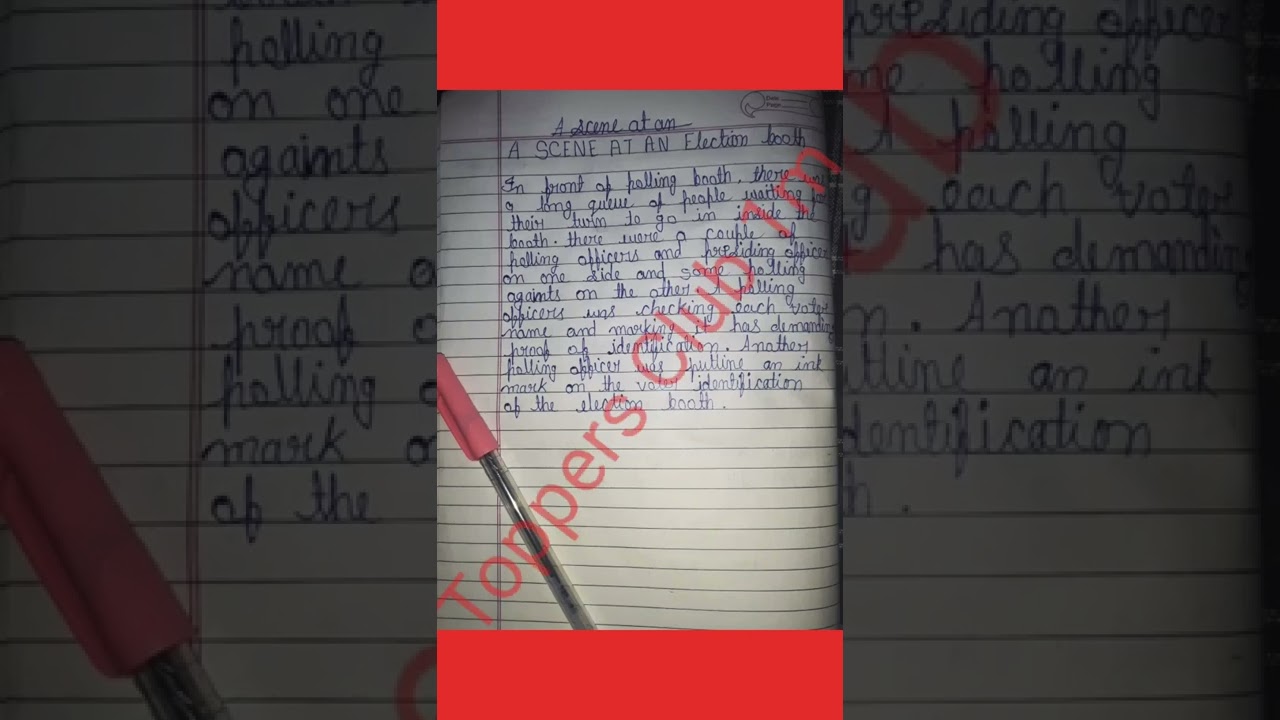 A scene at an
A SCENE AT AN Election booth
In front of polling booth, there was
a long queue of people waiting for
their turn to go in inside the
booth. there were a couple of
polling officers and presiding officer
on one side and some polling
againts on the other. A polling
officers was checking each voter
name and marking it has demanding
proof of identification. Anather
polling officer was putline an ink
mark on the voter identification
of the election booth.
Toppers Club 1m